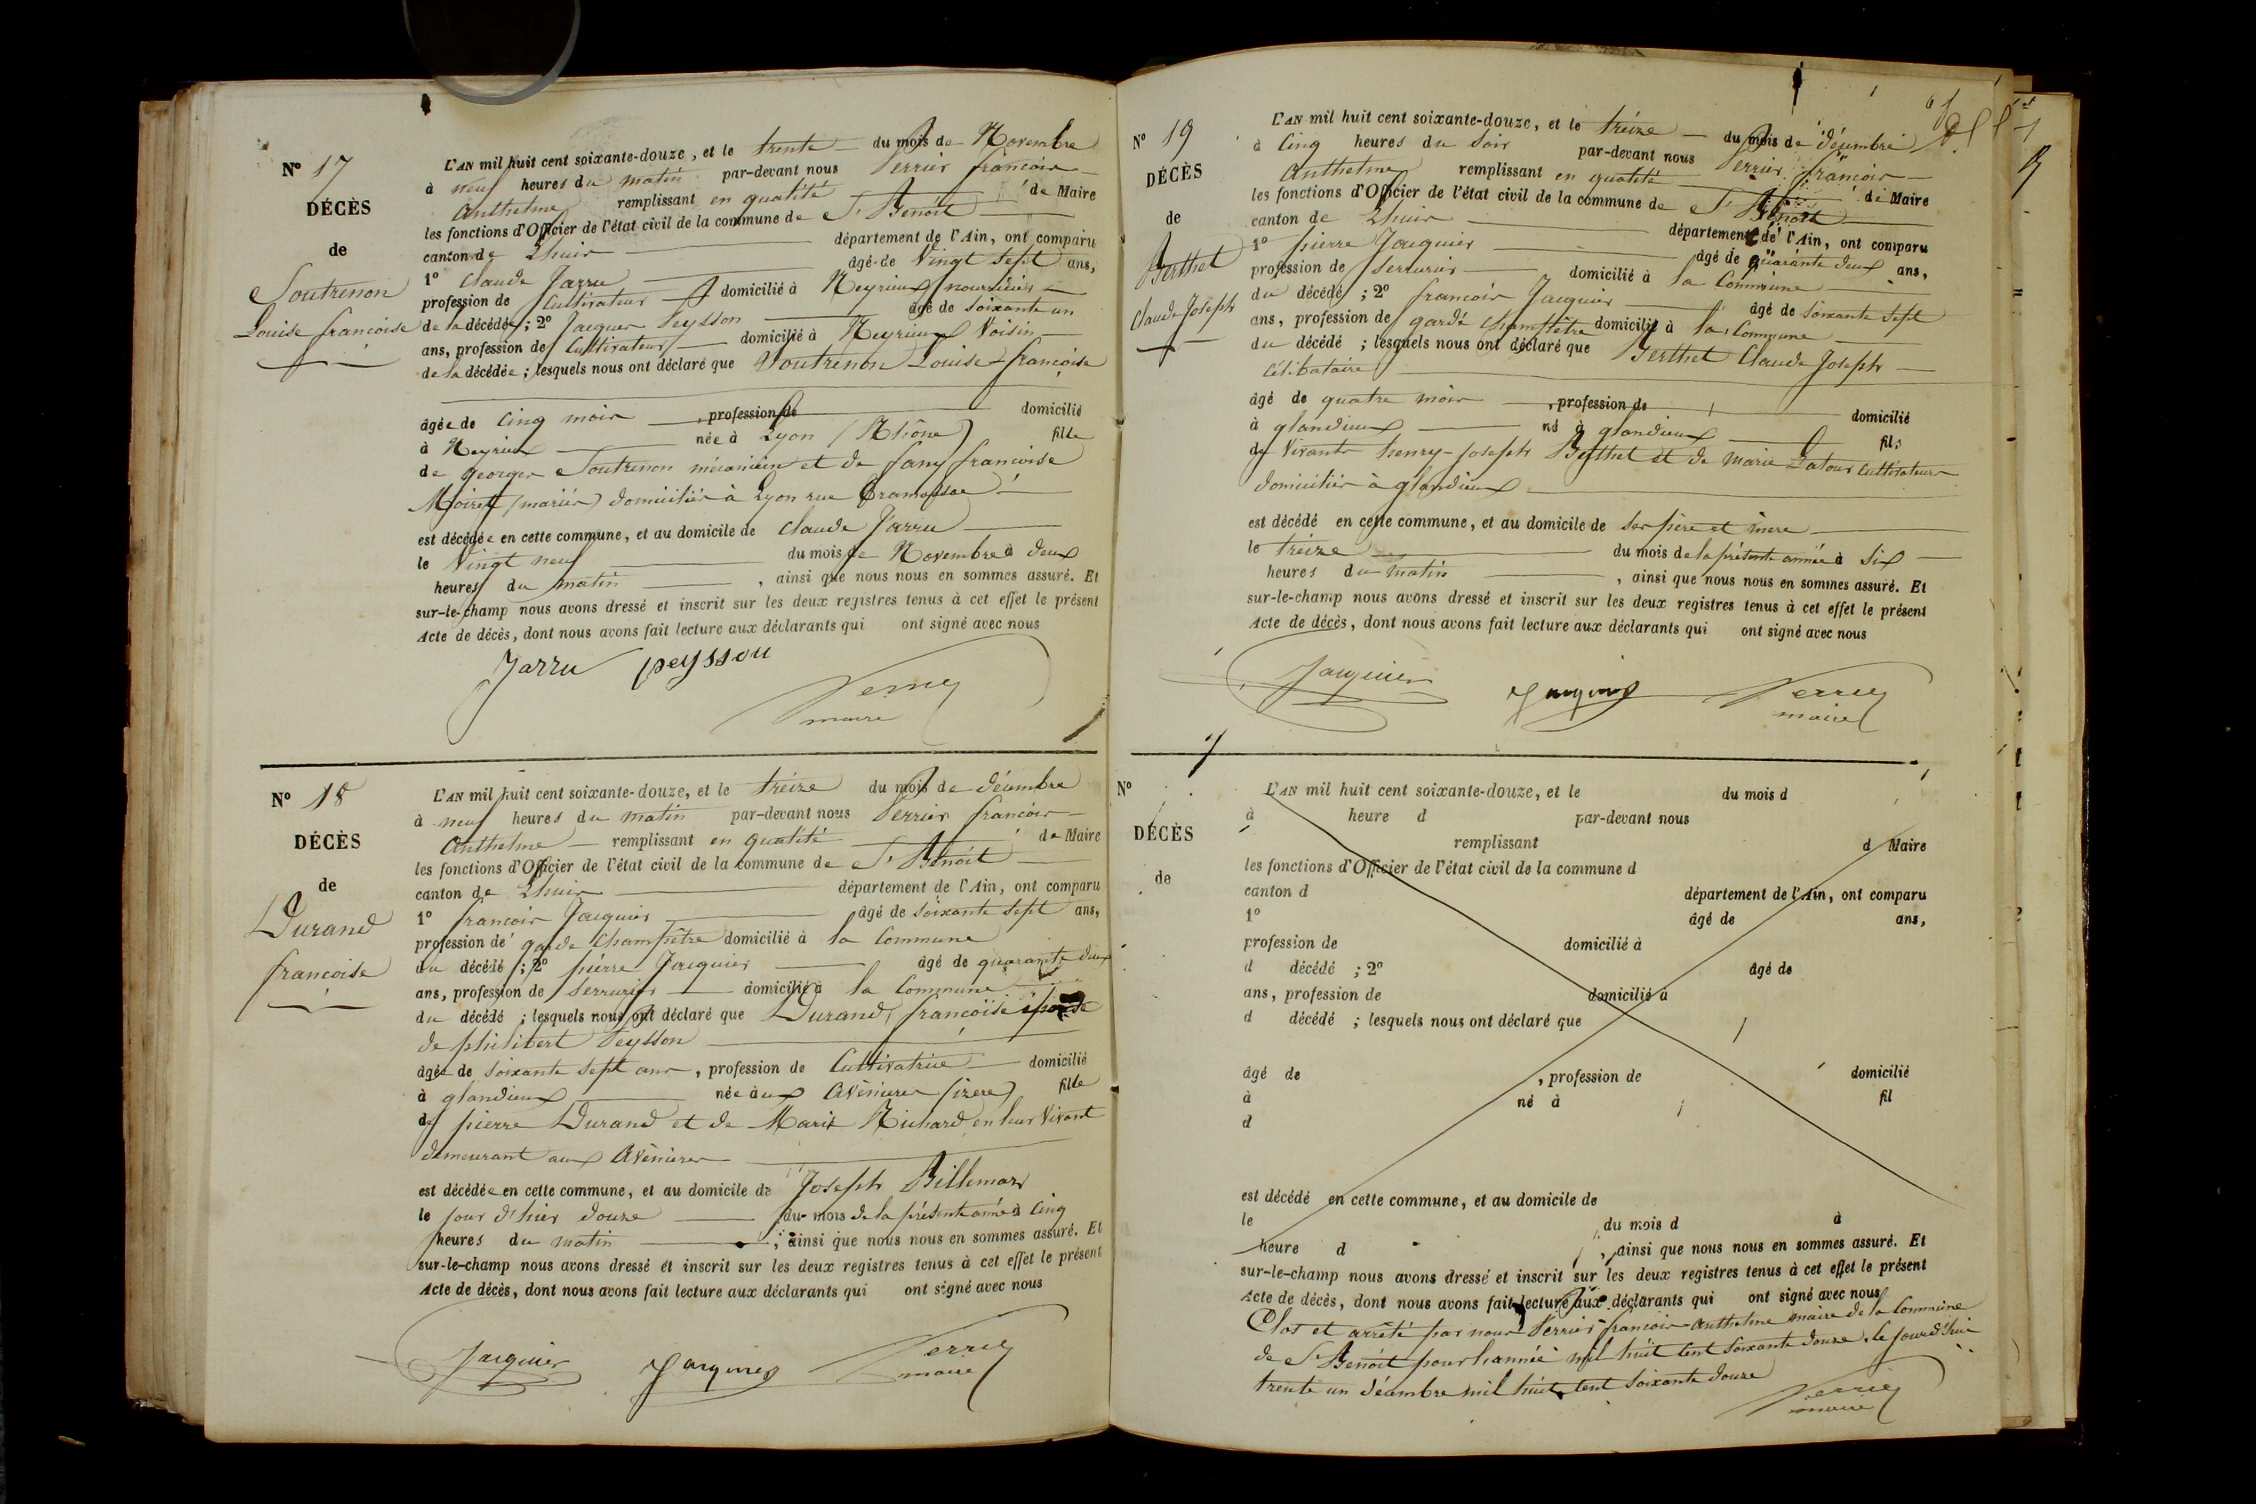 N° 17
DÉCÈS
de
Soutrenon
Louise françoise
L'AN mil huit cent soixante-douze, et le trente du mois de Novembre
à neuf heures du matin par-devant nous Perrier françois
Anthelme remplissant en qualité de Maire
les fonctions d'Officier de l'état civil de la commune de St Benoit
canton de Lhuis département de l'Ain, ont comparu
1° Claude Jarru âgé de Vingt sept ans,
profession de Cultivateur domicilié à Neyrieux nourricier
de la décédée ; 2° Jacques Peysson âgé de soixante un
ans, profession de Cultivateur domicilié à Neyrieux Voisin
de la décédée ; lesquels nous ont déclaré que Soutrenon Louise françoise
âgée de cinq mois , profession de domicilié
à Neyrieux née à Lyon (Rhône) fille
de georges Soutrenon mécanicien et de fany françoise
Moiret (mariés) domiciliés à Lyon rue
est décédée en cette commune, et au domicile de Claude Jarru
le Vingt neuf du mois de Novembre à deux
heures du matin , ainsi que nous nous en sommes assuré. Et
sur-le-champ nous avons dressé et inscrit sur les deux registres tenus à cet effet le présent
Acte de décès, dont nous avons fait lecture aux déclarants qui ont signé avec nous
Jarru peysson
Perrier
maire
N° 18
DÉCÈS
de
Durand
françoise
L'AN mil huit cent soixante-douze, et le treize du mois de décembre
à neuf heures du matin par-devant nous Perrier françois
Anthelme remplissant en qualité de Maire
les fonctions d'Officier de l'état civil de la commune de St Benoit
canton de Lhuis département de l'Ain, ont comparu
1° françois Jacquier âgé de soixante sept ans,
profession de garde Champêtre domicilié à la Commune
du décédé ; 2° pierre Jacquier âgé de quarante deux
ans, profession de Serrurier domicilié à la Commune
du décédé ; lesquels nous ont déclaré que Durand françoise épouse
de philibert Peysson
âgée de soixante sept ans , profession de Cultivatrice domicilié
à glandieux née aux Avenieres (isere) fille
de pierre Durand et de Marie Richard en leur Vivant
demeurant aux Avenieres
est décédée en cette commune, et au domicile de Joseph Billemas
le jour d'hier douze du mois de la présente année à Cinq
heures du matin , ainsi que nous nous en sommes assuré. Et
sur-le-champ nous avons dressé et inscrit sur les deux registres tenus à cet effet le présent
Acte de décès, dont nous avons fait lecture aux déclarants qui ont signé avec nous
Jacquier Jacquier Perrier
maire
N° 19
DÉCÈS
de
Berthet
Claude Joseph
L'AN mil huit cent soixante-douze, et le treize du mois de décembre
à Cinq heures du Soir par-devant nous Perrier françois
Anthelme remplissant en qualité de Maire
les fonctions d'Officier de l'état civil de la commune de St Benoit
canton de Lhuis département de l'Ain, ont comparu
1° pierre Jacquier âgé de quarante deux ans,
profession de Serrurier domicilié à la Commune
du décédé ; 2° françois Jacquier âgé de soixante sept
ans, profession de garde Champêtre domicilié à la Commune
du décédé ; lesquels nous ont déclaré que Berthet Claude Joseph
célibataire
âgé de quatre mois , profession de domicilié
à glandieux né à glandieux fils
de Vivants henry-joseph Berthet et de marie Latour Cultivateurs
domiciliés à glandieux
est décédé en cette commune, et au domicile de ses père et mère
le treize du mois de la présente année à Six
heures du matin , ainsi que nous nous en sommes assuré. Et
sur-le-champ nous avons dressé et inscrit sur les deux registres tenus à cet effet le présent
Acte de décès, dont nous avons fait lecture aux déclarants qui ont signé avec nous
Jacquier Jacquier Perrier
maire
N°
DÉCÈS
de
L'AN mil huit cent soixante-douze, et le du mois d
à heure d par-devant nous
remplissant d Maire
les fonctions d'Officier de l'état civil de la commune d
canton d département de l'Ain, ont comparu
1° âgé de ans,
profession de domicilié à
d décédé ; 2° âgé de
ans, profession de domicilié à
d décédé ; lesquels nous ont déclaré que
âgé de , profession de domicilié
à né à fil
d
est décédé en cette commune, et au domicile de
le du mois d à
heure d , ainsi que nous nous en sommes assuré. Et
sur-le-champ nous avons dressé et inscrit sur les deux registres tenus à cet effet le présent
Acte de décès, dont nous avons fait lecture aux déclarants qui ont signé avec nous
Clos et arrêté par nous Perrier françois Anthelme maire de la Commune
de St Benoit pour l'année mil huit cent soixante douze, le jourd'hui
trente un décembre mil huit cent soixante douze
Perrier
maire